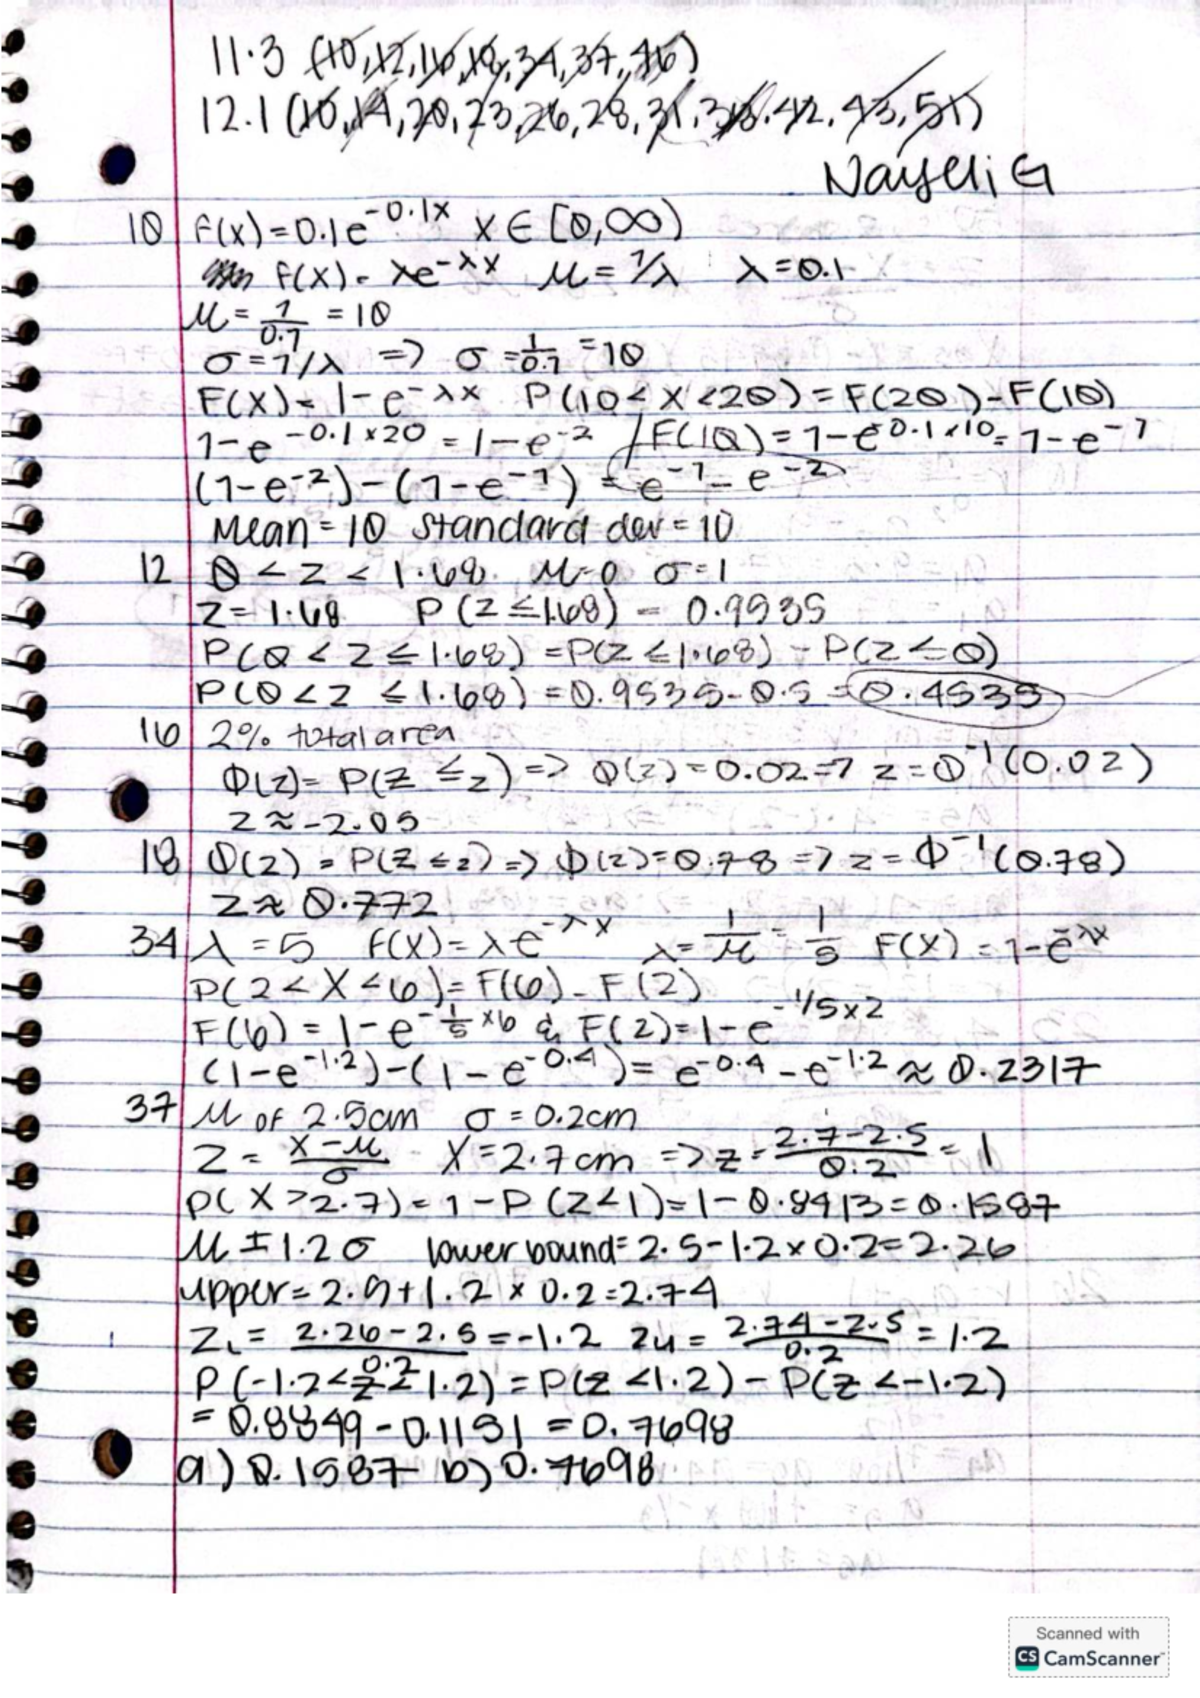 11.3 (10,12,16,18,34,37,46)
12.1 (10,14,20,23,26,28,31,38,42,43,51)
Nayeli G
10 f(x)=0.1e^-0.1x x∈[0,∞)
f(x)=λe^-λx μ=1/λ λ=0.1
μ=1/0.1=10
σ=1/λ => σ=1/0.1=10
F(X)=1-e^-λx P(10<X<20)=F(20)-F(10)
1-e^-0.1×20=1-e^-2 /F(10)=1-e^0.1×10=1-e^-1
(1-e^-2)-(1-e^-1)=e^-1-e^-2
Mean=10 standard dev=10
12 0<Z<1.68. μ=0 σ=1
Z=1.68 P(Z≤1.68)=0.9535
P(0<Z≤1.68)=P(Z≤1.68)-P(Z≤0)
P(0<Z≤1.68)=0.9535-0.5=0.4535
16 2% total area
Φ(z)=P(Z≤z)=>Φ(z)=0.02=>z=Φ^-1(0.02)
Z≈-2.05
18 Φ(z)=P(Z≤z)=>Φ(z)=0.78=>z=Φ^-1(0.78)
Z≈0.772
34 λ=5 f(x)=λe^-λx λ=1/μ=1/5 F(X)=1-e^-λx
P(2<X<6)=F(6)-F(2)
F(6)=1-e^-1/5×6 & F(2)=1-e^-1/5×2
(1-e^-1.2)-(1-e^-0.4)=e^-0.4-e^-1.2≈0.2317
37 μ of 2.5cm σ=0.2cm
Z=X-μ/σ X=2.7cm =>z=2.7-2.5/0.2=1
P(X>2.7)=1-P(Z<1)=1-0.8413=0.1587
μ±1.2σ lower bound=2.5-1.2×0.2=2.26
upper=2.5+1.2×0.2=2.74
ZL=2.26-2.5/0.2=-1.2 Zu=2.74-2.5/0.2=1.2
P(-1.2<Z<1.2)=P(Z<1.2)-P(Z<-1.2)
=0.8849-0.1151=0.7698
a) 0.1587 b) 0.7698
Scanned with
CS CamScanner